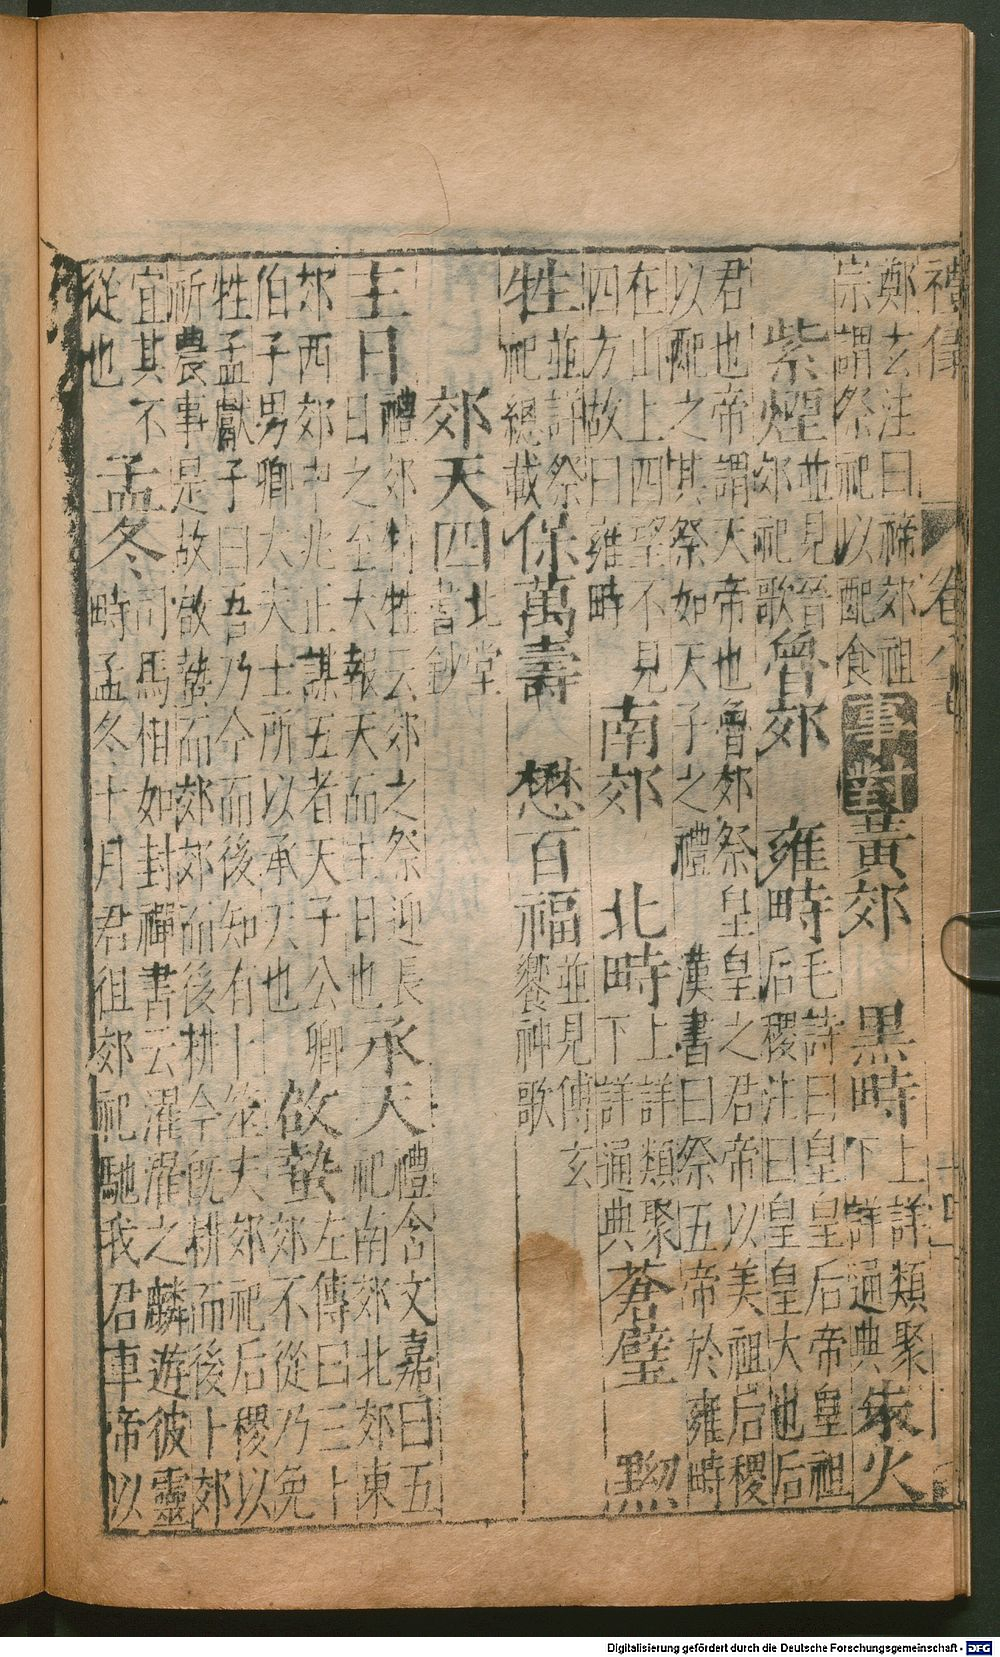 禮儀 卷八 十四
鄭玄注曰禘郊祖
宗謂祭祀以配食
事對 黃郊 黑畤
上詳類聚
下詳通典
朱火
紫煙
並見晉
郊祀歌
魯郊 雍畤
毛詩曰皇皇后帝皇祖
后稷注曰皇皇大也后
君也帝謂天帝也魯郊祭皇皇之君帝以美祖后稷
以配之其祭如天子之禮 漢書曰祭五帝於雍畤
在山上四望不見
四方故曰雍畤
南郊 北畤
上詳類聚
下詳通典
蒼璧 黝
牲
並詳祭
祀總載
保萬壽 懋百福
並見傅玄
饗神歌
郊天四
北堂
書鈔
主日
禮郊特牲云郊之祭迎長
日之至大報天而主日也
承天
禮含文嘉曰五
祀南郊北郊東
郊西郊中兆正謀五者天子公卿
伯子男卿大夫士所以承天也
啟蟄
左傳曰三卜
郊不從乃免
牲孟獻子曰吾乃今而後知有卜筮夫郊祀后稷以
祈農事是故啟蟄而郊郊而後耕今既耕而後卜郊
宜其不
從也
孟冬
司馬相如封禪書云濯濯之麟遊彼靈
畤孟冬十月君徂郊祀馳我君車帝以
Digitalisierung gefördert durch die Deutsche Forschungsgemeinschaft - DFG